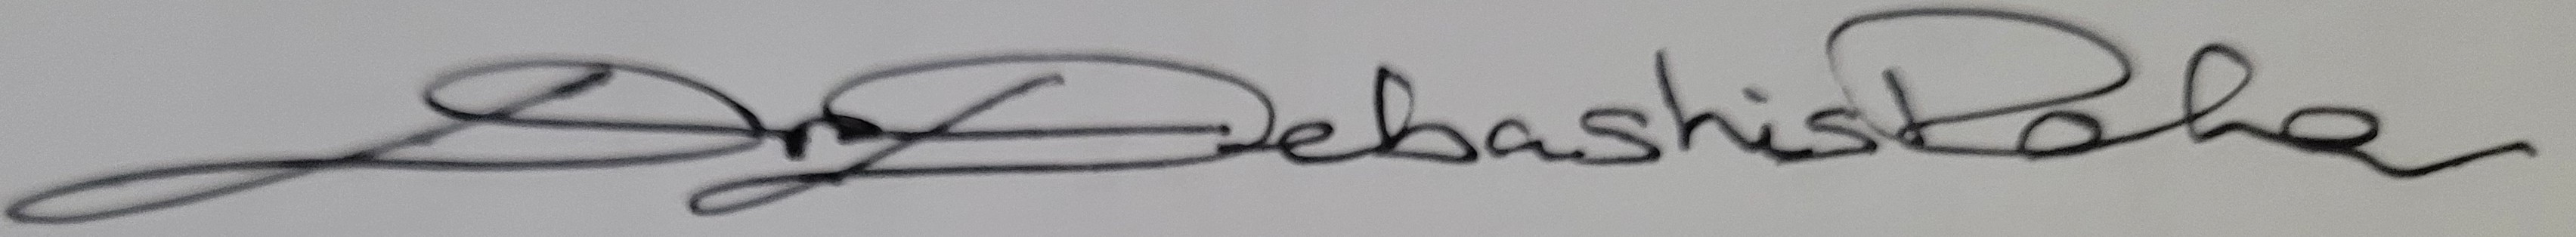 Dr Debashis Raha